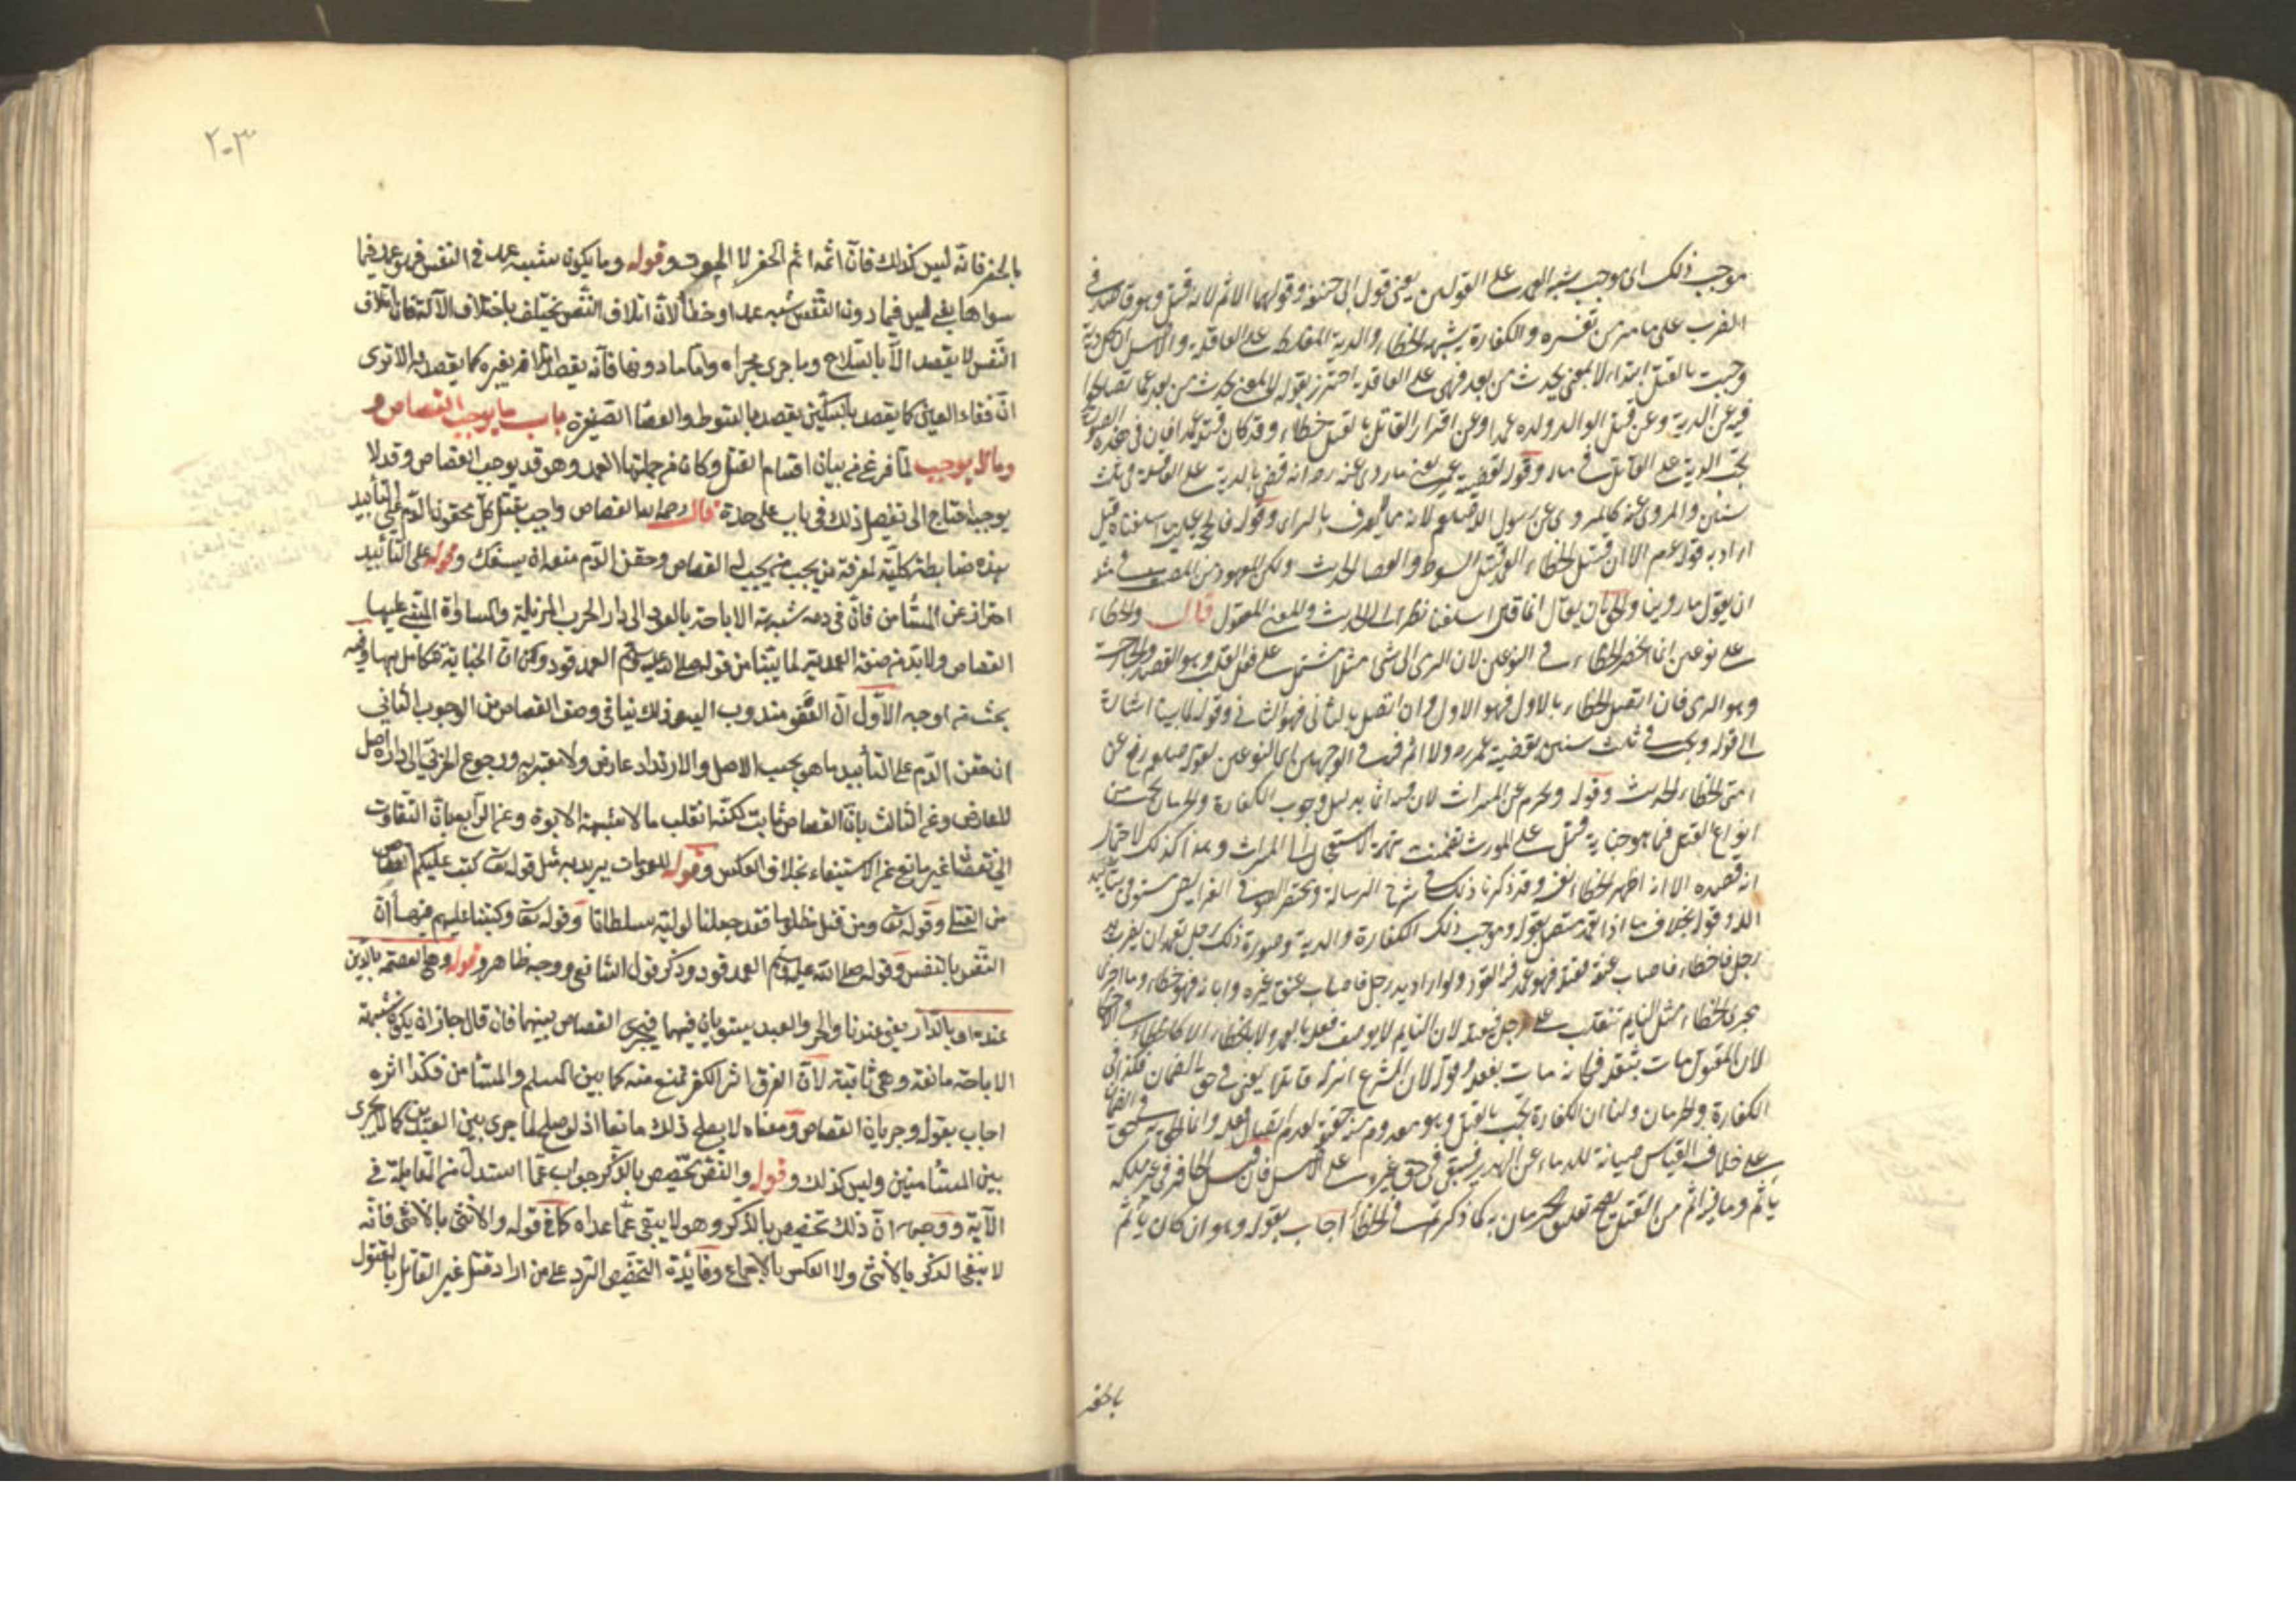 موجب ذلك اى موجب شبه العمد على القولين يعنى قول ابى حنيفة وقولهما الاثم لانه قتل وهو قاصد فى
الضرب على ما مر من تفسره والكفارة لشبهه بالخطاء والدية المغلظة على العاقلة والاصل ان كل دية
وجبت بالقتل ابتداء لا بمعنى يحدث من بعد فهى على العاقلة احترز بقوله لا لمعنى يحدث من بعد عما تصالحوا
فيه عن الدية وعن قتل الوالد ولده عمدا وعن اقرار القاتل بالقتل خطاء وقد كان قتله عمدا فان فى هذه الصور
تجب الدية على القاتل فى ماله وقوله لقضية عمر يعنى ما روى عنه رضه انه قضى بالدية على العاقلة فى ثلث
سنين والمروى عنه كالمروى عن رسول الله صلعم لانه مما لا يعرف بالراى وقوله فالحجة عليه ما اسلفناه قيل
اراد به قوله عم الا ان قتيل الخطاء العمد قتيل السوط والعصا الحديث ولكن المعهود من المصنف فى مثله
ان يقول ما روينا والحق ان يقال انما قال اسلفنا نظرا الى الحديث والمعنى المعقول قال والخطاء
على نوعين انما انحصر الخطاء فى النوعين لان الرمى الى شئ مثلا مشتمل على فعل القلب وهو القصد والجارحة
وهو الرمى فان اتصل الخطاء بالاول فهو الاول وان اتصل بالثانى فهو الثانى وقوله لما بينا اشارة
الى قوله ويجب فى ثلث سنين لقضية عمر رضه ولا اثم فيه فى الوجهين اى النوعين لقوله صلعم رفع عن
امتى الخطاء الحديث وقوله ويحرم عن الميراث لان فيه اثما بدليل وجوب الكفارة والحرمان يجب من
انواع القتل فيما هو جناية قتل على المورث تضمنت تهمة الاستعجال الى الميراث وهذا كذلك لاحتمال
انه قصده الا انه اظهر الخطاء من نفسه وقد ذكرنا ذلك فى شرح الرسالة ومختصر الضوء فى الفرايض مستوفى بتأييد
الله وقوله بخلاف ما اذا تعمد متصل بقوله وموجب ذلك الكفارة والدية وصورة ذلك رجل تعمد ان يضرب يد
رجل فاخطاء فاصاب عنقه فقتله فهو عمد فيه القود ولو اراد يد رجل فاصاب عنق غيره وابانه فهو خطاء وما اجرى
مجرى الخطاء مثل النايم تنقلب على رجل فيقتله لان النايم لا يوصف فعله بالعمد ولا بالخطاء الا كالخطاء فى الاحكام
لان المقتول مات بثقله فكانه مات بفعله وقوله لان الشرع انزله قاتلا يعنى فى حق الضمان فكذا فى
الكفارة والحرمان ولنا ان الكفارة تجب بالقتل وهو معدوم منه حقيقة لعدم اتصال فعله وانما الحق به فى حق الضمان
على خلاف القياس صيانة للدماء عن الهدر فبقى فى حق غيره على الاصل فان قيل الحافر فى غير ملكه
يأثم وما فيه اثم من القتل يصح تعليق الحرمان به كما ذكرتم فى الخطأ اجاب بقوله وهو ان كان يأثم
بالحفر
٢٠٣
بالحفر فانه ليس كذلك فان اثمه اثم الحفر لا الموت وقوله وما يكون شبه عمد فى النفس فهو عمد فيما
سواها يعنى ليس فيما دون النفس شبه عمد او خطأ لان اتلاف النفس يختلف باختلاف الآلة فان اتلاف
النفس لا يقصد الا بالسلاح وما جرى مجراه واما ما دونها فانه يقصد اتلافه بغيره كما يقصد به الا ترى
ان فقاء العين كما يقصد بالسكين يقصد بالسوط والعصا الصغيرة باب ما يوجب القصاص و
وما لا يوجب لما فرغ من بيان اقسام القتل وكان من جملتها العمد وهو قد يوجب القصاص وقد لا
يوجبه احتاج الى تفصيل ذلك فى باب على حدة قال رحمه الله القصاص واجب بقتل كل محقون الدم على التأبيد
هذه ضابطة كلية لمعرفة من يجب من يجب له القصاص وحقن الدم منعه ان يسفك وقوله على التأبيد
احتراز عن المستأمن فان فى دمه شبهة الاباحة بالعود الى دار الحرب المزيلة والمساواة المبنى عليها
القصاص ولا بد من صفة العمدية لما بينا من قوله صلى الله عليه وسلم العمد قود وكون ان الجناية تتكامل بها وفيه
بحث من اوجه الاول ان العفو مندوب اليه وذلك ينافى وصف القصاص من الوجوب الثانى
ان حقن الدم على التأبيد ما هو بحسب الاصل والارتداد عارض ولا معتبر به ورجوع الحربى الى داره اصل
للعارض وعن الثالث بان القصاص ثابت لكنه انقلب مالا لشبهة الابوة وعن الرابع بان التفاوت
الى نقصان غير مانع عن الاستيفاء بخلاف العكس وقوله للعمومات يريد به مثل قوله تعا كتب عليكم القصاص
من القتلى وقوله تعا ومن قتل مظلوما فقد جعلنا لوليه سلطانا وقوله تعا وكتبنا عليهم فيها ان
النفس بالنفس وقوله صلى الله عليه وسلم العمد قود وذكر قول الشافعى ووجهه ظاهر وقوله وهى العصمة بالدين
عنده او بالدار يعنى عندنا والحر والعبد يستويان فيهما فيجرى القصاص بينهما فان قال جاز ان يكون شبهة
الاباحة مانعة وهى ثابتة لان الفرق اثر الكفر تمنع منه كما بين المسلم والمستأمن فكذا اثره
اجاب بقوله وجريان القصاص ومعناه لا يصلح ذلك مانعا اذ لو صلح لما جرى بين العبدين كما لا يجرى
بين المستأمنين وليس كذلك وقوله والنص تخصيص بالذكر جواب عما استدل من المقابلة فى
الآية ووجهه ان ذلك تخصيص بالذكر وهو لا ينفى عما عداه كما فى قوله والانثى بالانثى فانه
لا ينفى الذكر بالانثى ولا العكس بالاجماع وفائدة التخصيص الرد على من اراد قتل غير القاتل بالمقتول